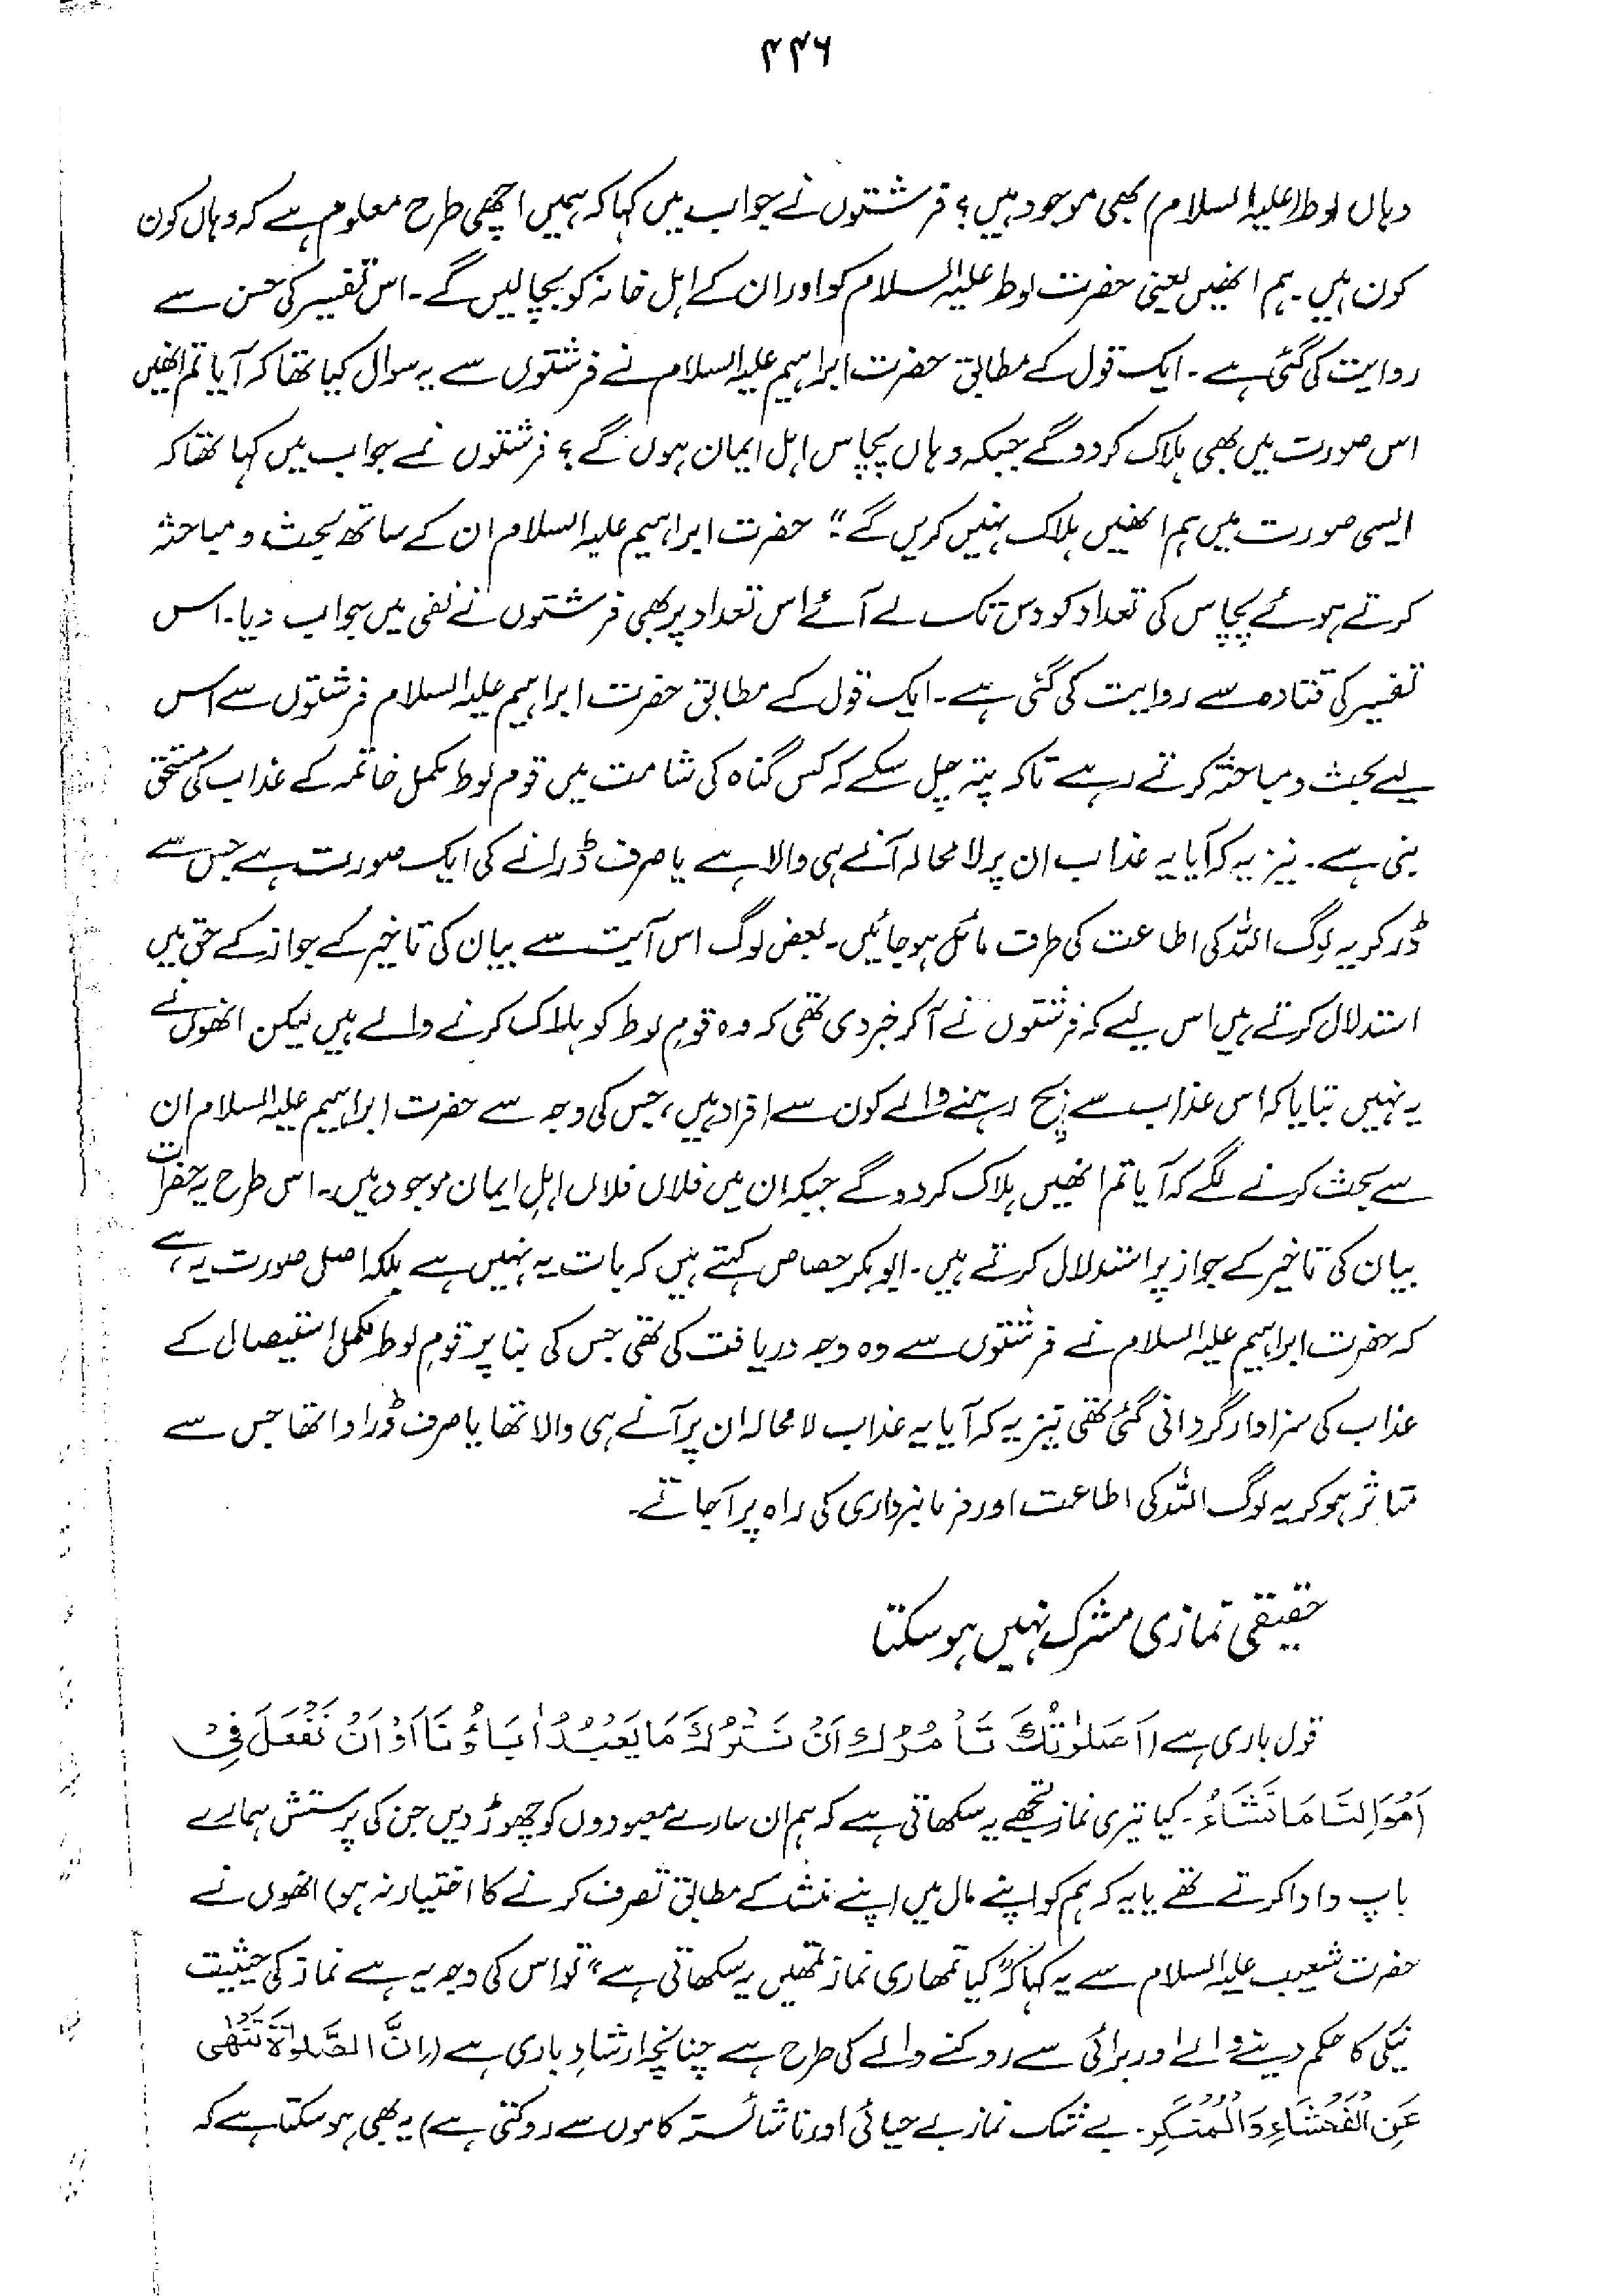 ۴۴۶
وہاں لوط (علیہ السلام) بھی موجود ہیں؟ فرشتوں نے جواب میں کہا کہ ہمیں اچھی طرح معلوم ہے کہ وہاں کون
کون ہیں۔ ہم انھیں یعنی حضرت لوط علیہ السلام کو اور ان کے اہل خانہ کو بچا لیں گے۔ اس تفسیر کی حسن سے
روایت کی گئی ہے۔ ایک قول کے مطابق حضرت ابراہیم علیہ السلام نے فرشتوں سے یہ سوال کیا تھا کہ آیا تم انھیں
اس صورت میں بھی ہلاک کر دو گے جبکہ وہاں پچاس اہل ایمان ہوں گے؟ فرشتوں نے جواب میں کہا تھا کہ
ایسی صورت میں ہم انھیں ہلاک نہیں کریں گے“ حضرت ابراہیم علیہ السلام ان کے ساتھ بحث و مباحثہ
کرتے ہوئے پچاس کی تعداد کو دس تک لے آئے اس تعداد پر بھی فرشتوں نے نفی میں جواب دیا۔ اس
تفسیر کی قتادہ سے روایت کی گئی ہے۔ ایک قول کے مطابق حضرت ابراہیم علیہ السلام فرشتوں سے اس
لیے بحث و مباحثہ کرتے رہے تاکہ پتہ چل سکے کہ کس گناہ کی شامت میں قوم لوط مکمل خاتمہ کے عذاب کی مستحق
بنی ہے۔ نیز یہ کہ آیا یہ عذاب ان پر لا محالہ آنے ہی والا ہے یا صرف ڈرانے کی ایک صورت ہے جس سے
ڈر کر یہ لوگ اللہ کی اطاعت کی طرف مائل ہو جائیں۔ بعض لوگ اس آیت سے بیان کی تاخیر کے جواز کے حق میں
استدلال کرتے ہیں اس لیے کہ فرشتوں نے آ کر خبر دی تھی کہ وہ قوم لوط کو ہلاک کرنے والے ہیں لیکن انھوں نے
یہ نہیں بتایا کہ اس عذاب سے بچ رہنے والے کون سے افراد ہیں، جس کی وجہ سے حضرت ابراہیم علیہ السلام ان
سے بحث کرنے لگے کہ آیا تم انھیں ہلاک کر دو گے جبکہ ان میں فلاں فلاں اہلِ ایمان موجود ہیں۔ اس طرح یہ حضرات
بیان کی تاخیر کے جواز پر استدلال کرتے ہیں۔ ابوبکر جصاص کہتے ہیں کہ بات یہ نہیں ہے بلکہ اصل صورت یہ ہے
کہ حضرت ابراہیم علیہ السلام نے فرشتوں سے وہ وجہ دریافت کی تھی جس کی بنا پر قومِ لوط مکمل استیصال کے
عذاب کی سزاوار گردانی گئی تھی نیز یہ کہ آیا یہ عذاب لا محالہ ان پر آنے ہی والا تھا یا صرف ڈراوا تھا جس سے
متاثر ہو کر یہ لوگ اللہ کی اطاعت اور فرمانبرداری کی راہ پر آ جاتے۔
حقیقی نمازی مشرک نہیں ہو سکتا
قول باری ہے (اَصَلٰوتُكَ تَاْمُرُكَ اَنْ نَتْرُكَ مَا يَعْبُدُ اٰبَاؤُنَا اَوْ اَنْ نَفْعَلَ فِيْ
اَمْوَالِنَا مَا نَشَاءُ۔ کیا تیری نماز تجھے یہ سکھاتی ہے کہ ہم ان سارے معبودوں کو چھوڑ دیں جن کی پرستش ہمارے
باپ دادا کرتے تھے یا یہ کہ ہم کو اپنے مال میں اپنے منشا کے مطابق تصرف کرنے کا اختیار نہ ہو) انھوں نے
حضرت شعیب علیہ السلام سے یہ کہا کہ ”کیا تمھاری نماز تمھیں یہ سکھاتی ہے“ تو اس کی وجہ یہ ہے نماز کی حیثیت
نیکی کا حکم دینے والے اور برائی سے روکنے والے کی طرح ہے چنانچہ ارشادِ باری ہے (اِنَّ الصَّلٰوةَ تَنْهٰى
عَنِ الْفَحْشَاءِ وَالْمُنْكَرِ۔ بے شک نماز بے حیائی اور ناشائستہ کاموں سے روکتی ہے) یہ بھی ہو سکتا ہے کہ